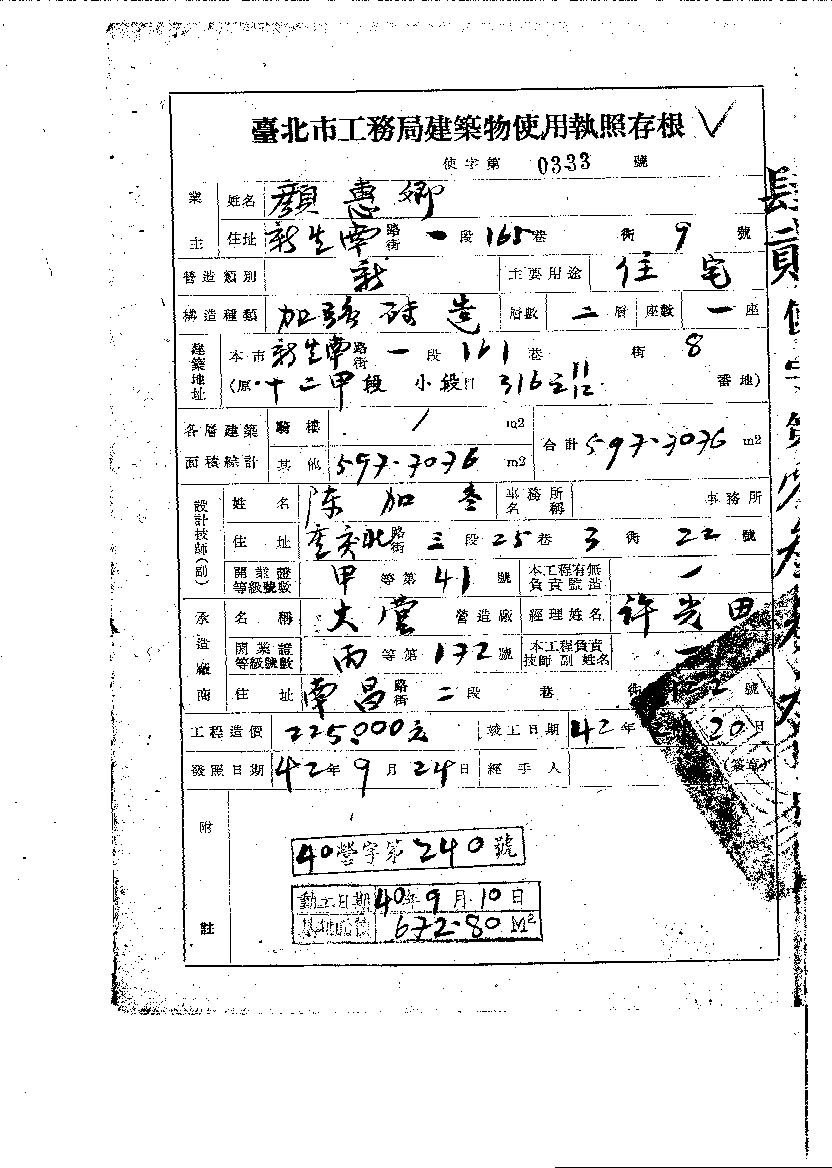 臺北市工務局建築物使用執照存根
使字第 0333 號
業主 姓名 顏惠卿
住址 新生南路街 一段 165巷 街 9 號
營造類別 新 主要用途 住宅
構造種類 加強磚造 層數 二層 座數 一座
建築地址 本市 新生南路街 一段 161巷 街 8
(原 十二甲段 小段 316之11 12 番地)
各層建築面積綜計 騎樓 / m2 合計 597.3076 m2
其他 597.3076 m2
設計技師(副) 姓名 陳加 事務所名稱 事務所
住址 重慶北路街 三段 25巷 3街 22號
開業證等級號數 甲等第 41 號 本工程有無負責監造 一
承造廠商 名稱 大 營造廠 經理姓名 許 田
開業證等級號數 丙等第 172 號 本工程負責技師副姓名 一
住址 南昌路街 二段 巷 街 2號
工程造價 225,000元 竣工日期 42年 20日
發照日期 42年 9月 24日 經手人 (簽章)
附註
40營字第240號
動工日期 40年9月10日
672.80 M²